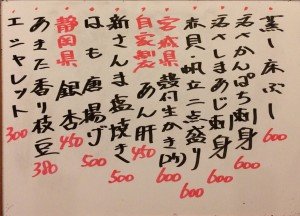 蒸し床ぶし 600
活〆かんぱち刺身 600
活〆しまあじ刺身 600
赤貝・帆立二点盛り 600
宮城県 殻付生かき(2ヶ) 600
自家製 あん肝 450
新さんま塩焼き 500
はも唐揚げ 500
静岡県 銀杏 450
あきた香り枝豆 380
エシャレット 300